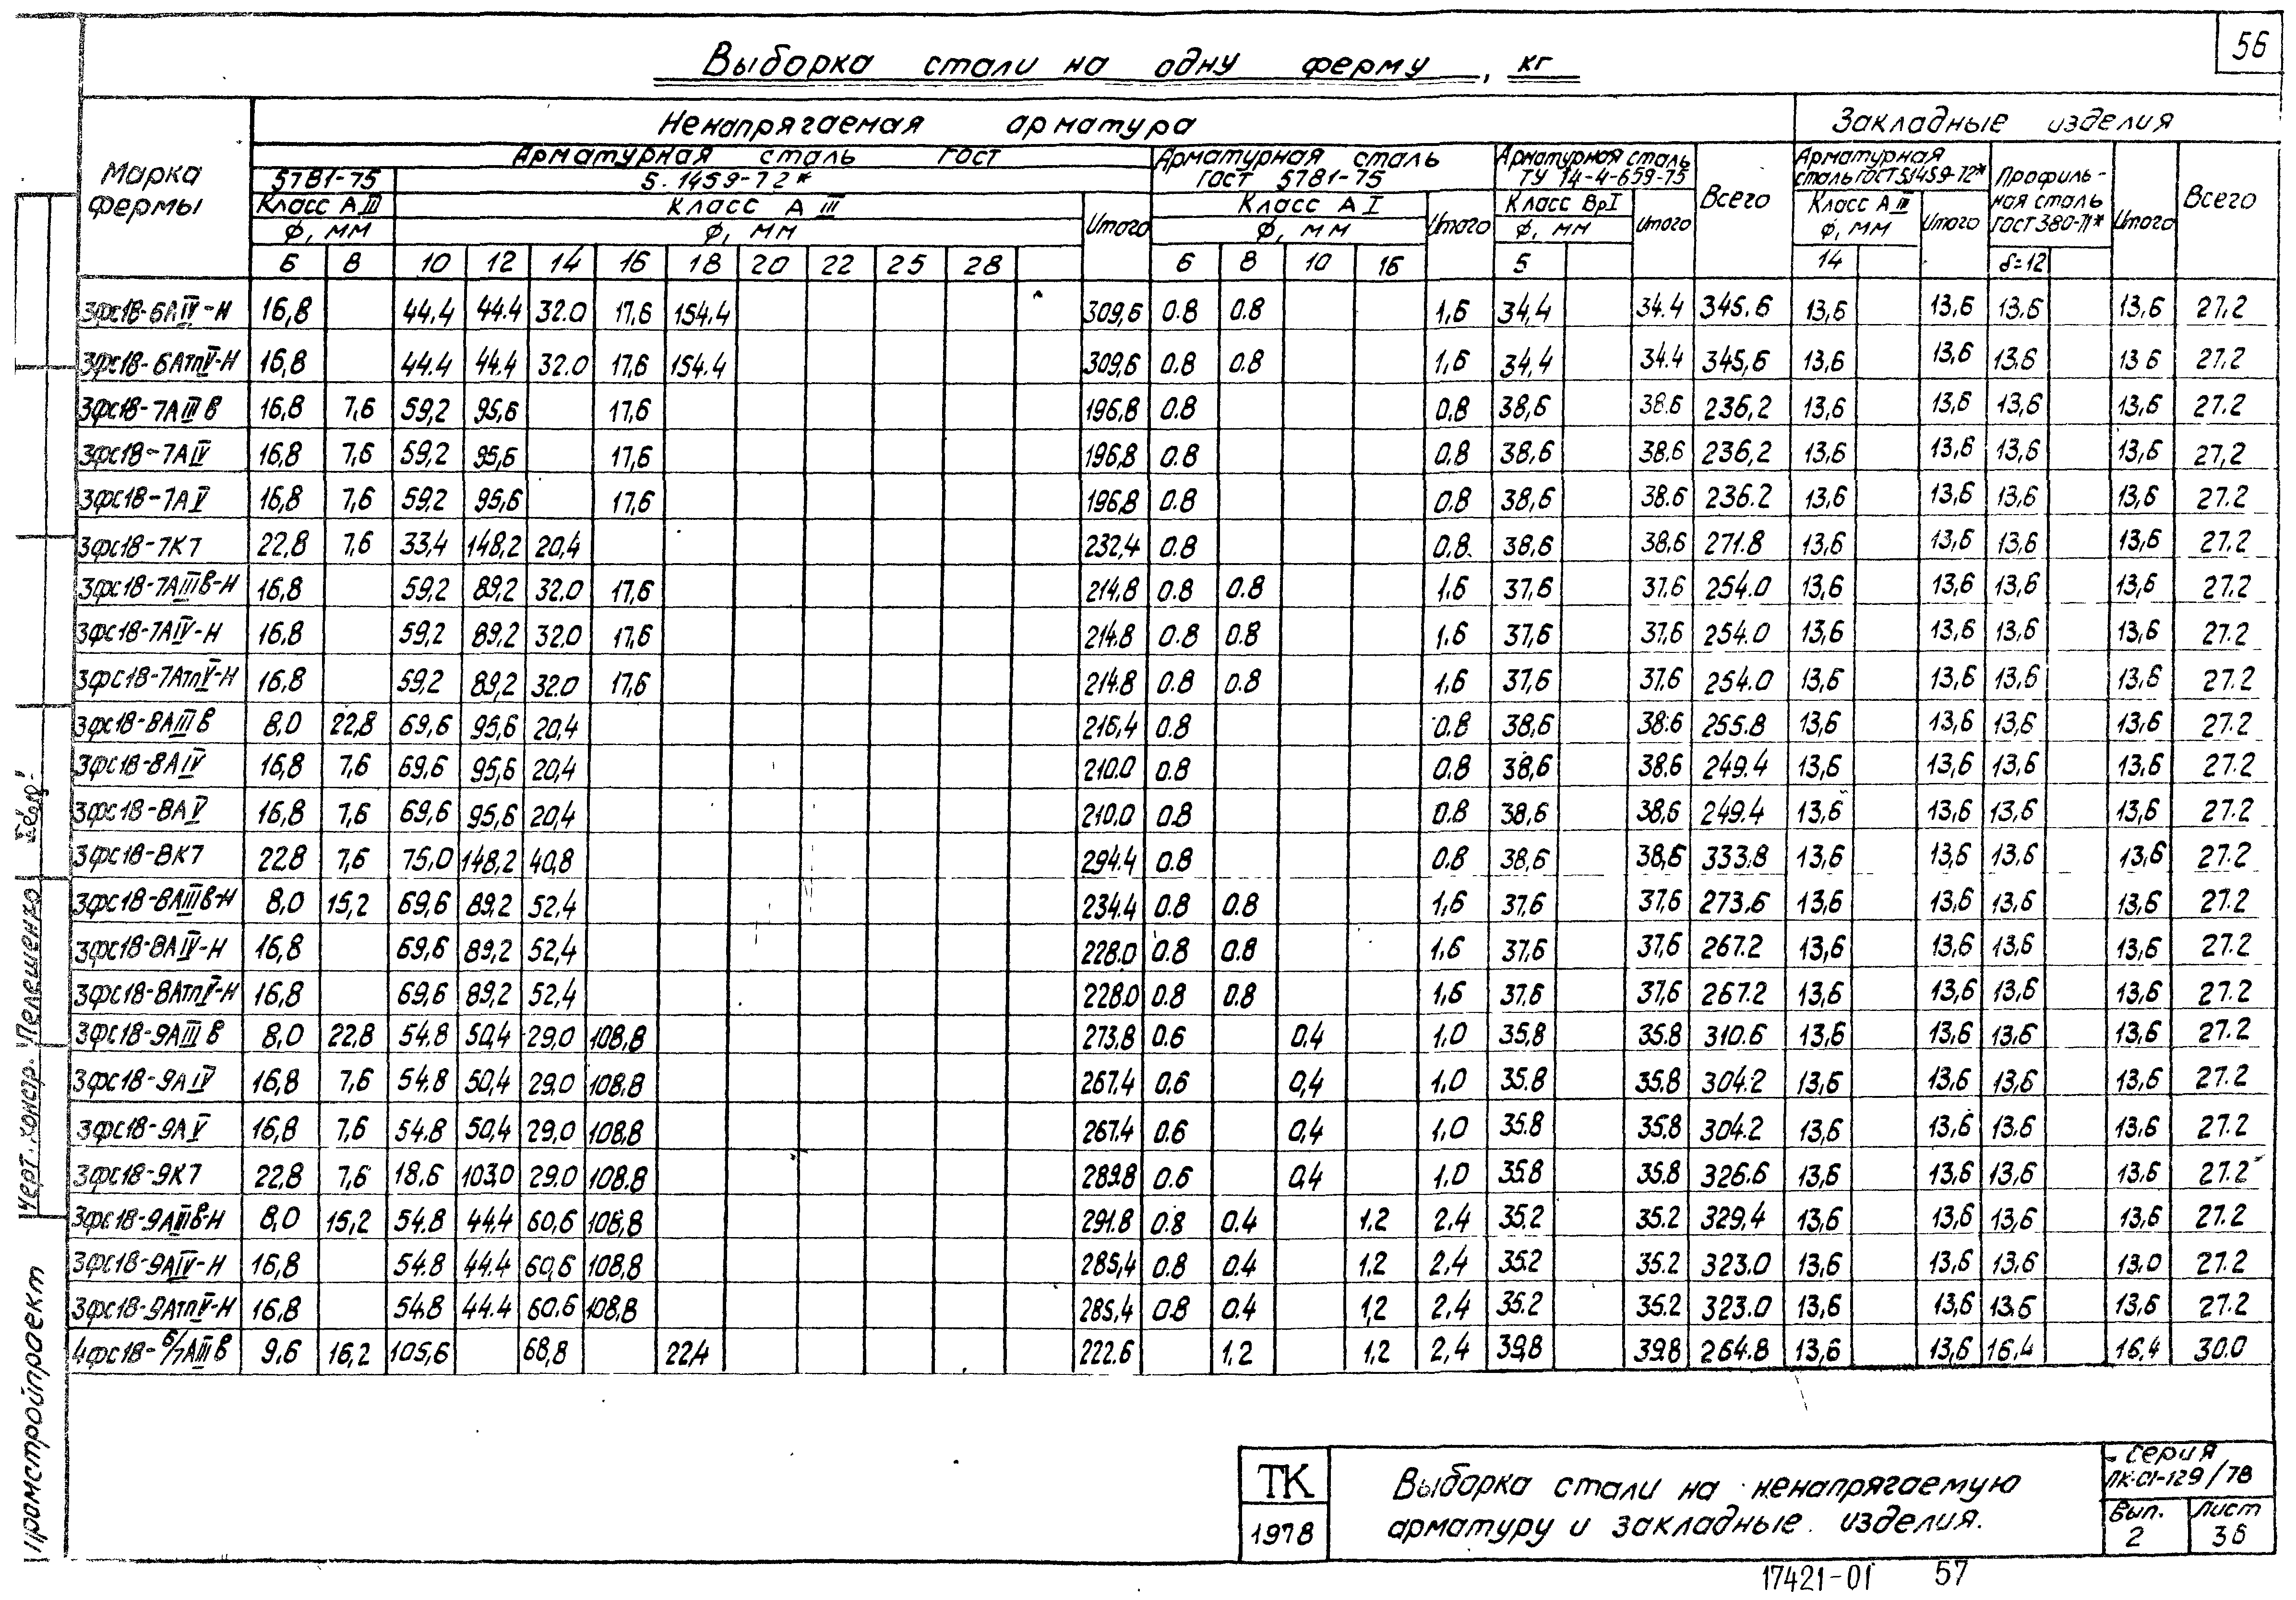 56
Выборка стали на одну ферму, кг
Марка фермы
Ненапрягаемая арматура
Закладные изделия
Арматурная сталь ГОСТ
5781-75
5.1459-72*
Арматурная сталь ГОСТ 5781-75
Арматурная сталь ТУ 14-4-659-75
Всего
Арматурная сталь ГОСТ 5.1459-72*
Профильная сталь ГОСТ 380-71*
Итого
Всего
Класс А III
Класс А III
Итого
Класс А I
Итого
Класс ВрI
Итого
Класс А III
Итого
ф, мм
ф, мм
ф, мм
ф, мм
ф, мм
6 8 10 12 14 16 18 20 22 25 28 6 8 10 16 5 14 δ=12
3фс18-6АIV-Н 16,8 44.4 44.4 32.0 17,6 154.4 309,6 0.8 0.8 1,6 34,4 34.4 345.6 13,6 13,6 13.6 13,6 27.2
3фс18-6АтпV-Н 16,8 44.4 44.4 32.0 17,6 154.4 309,6 0.8 0.8 1,6 34,4 34.4 345,6 13,6 13,6 13.6 13 6 27,2
3фс18-7АIIIв 16,8 7,6 59,2 95,6 17,6 196.8 0.8 0,8 38,6 38.6 236,2 13,6 13,6 13,6 13,6 27.2
3фс18-7АIV 16,8 7,6 59,2 95,6 17,6 196,8 0.8 0.8 38,6 38.6 236,2 13,6 13,6 13,6 13,6 27,2
3фс18-7АV 16,8 7,6 59,2 95,6 17,6 196,8 0.8 0.8 38,6 38.6 236.2 13,6 13,6 13,6 13,6 27.2
3фс18-7К7 22,8 7,6 33,4 148,2 20,4 232,4 0.8 0.8 38,6 38,6 271.8 13,6 13,6 13,6 13,6 27.2
3фс18-7АIIIв-Н 16,8 59,2 89,2 32.0 17,6 214,8 0.8 0.8 1.6 37,6 37,6 254.0 13,6 13,6 13,6 13,6 27.2
3фс18-7АIV-Н 16,8 59,2 89,2 32.0 17,6 214.8 0.8 0.8 1.6 37,6 37,6 254.0 13,6 13,6 13,6 13,6 27.2
3фс18-7АтпV-Н 16,8 59,2 89,2 32.0 17,6 214.8 0.8 0.8 1,6 37,6 37,6 254.0 13,6 13,6 13,6 13,6 27.2
3фс18-8АIIIв 8,0 22,8 69,6 95,6 20,4 216,4 0.8 0.8 38,6 38.6 255.8 13,6 13,6 13,6 13,6 27.2
3фс18-8АIV 16,8 7,6 69,6 95,6 20,4 210.0 0.8 0.8 38,6 38.6 249.4 13,6 13,6 13,6 13,6 27.2
3фс18-8АV 16,8 7,6 69,6 95,6 20,4 210,0 0.8 0.8 38,6 38,6 249.4 13,6 13,6 13,6 13,6 27.2
3фс18-8К7 22.8 7,6 75,0 148,2 40,8 294.4 0.8 0.8 38,6 38,6 333.8 13,6 13,6 13,6 13,6 27.2
3фс18-8АIIIв-Н 8,0 15,2 69,6 89,2 52,4 234.4 0.8 0.8 1,6 37,6 37,6 273,6 13,6 13,6 13,6 13,6 27.2
3фс18-8АIV-Н 16,8 69,6 89,2 52,4 228.0 0.8 0.8 1,6 37,6 37,6 267.2 13,6 13,6 13,6 13,6 27.2
3фс18-8АтпV-Н 16,8 69,6 89,2 52,4 228.0 0.8 0.8 1,6 37,6 37,6 267.2 13,6 13,6 13,6 13,6 27.2
3фс18-9АIIIв 8,0 22,8 54.8 50,4 29,0 108,8 273,8 0.6 0.4 1.0 35,8 35.8 310.6 13,6 13,6 13,6 13,6 27.2
3фс18-9АIV 16,8 7,6 54.8 50,4 29.0 108.8 267.4 0.6 0,4 1.0 35.8 35.8 304.2 13,6 13,6 13,6 13,6 27.2
3фс18-9АV 16,8 7,6 54.8 50,4 29,0 108.8 267.4 0.6 0,4 1,0 35.8 35.8 304.2 13,6 13,6 13.6 13.6 27.2
3фс18-9К7 22,8 7,6 18,6 103,0 29.0 108.8 289.8 0.6 0,4 1.0 35.8 35.8 326.6 13,6 13,6 13,6 13,6 27.2
3фс18-9АIIIв-Н 8,0 15,2 54.8 44.4 60,6 108,8 291.8 0.8 0.4 1.2 2,4 35.2 35.2 329,4 13,6 13,6 13,6 13,6 27.2
3фс18-9АIV-Н 16,8 54.8 44.4 60,6 108.8 285,4 0.8 0.4 1.2 2,4 35.2 35.2 323.0 13,6 13,6 13,6 13.0 27.2
3фс18-9АтпV-Н 16,8 54.8 44.4 60.6 108,8 285,4 0.8 0.4 1,2 2,4 35.2 35.2 323.0 13,6 13,6 13.6 13,6 27.2
4фс18-6/7АIIIв 9,6 16,2 105,6 68,8 22,4 222.6 1.2 1.2 2,4 39,8 39.8 264.8 13,6 13,6 16,4 16,4 30.0
черт. констр. Пелешенко
Промстройпроект
ТК
1978
Выборка стали на ненапрягаемую
арматуру и закладные изделия.
серия
ПК-01-129/78
Вып. 2
Лист 36
17421-01 57